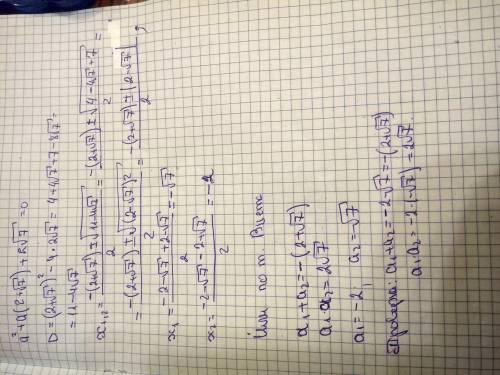 a² + a(2+√7) + 2√7 = 0
D = (2+√7)² - 4·2√7 = 4+4√7+7-8√7 =
= 11-4√7
x₁,₂ = (-(2+√7) ± √(11-4√7))/2 = (-(2+√7) ± √(4-4√7+7))/2 =
= (-(2+√7) ± √((2-√7)²))/2 = (-(2+√7) ± |2-√7|)/2 ;
x₁ = (-2-√7+2-√7)/2 = -√7
x₂ = (-2-√7-2+√7)/2 = -2
Или по т. Виета
a₁+a₂ = -(2+√7)
a₁·a₂ = 2√7
a₁ = -2, a₂ = -√7
Проверка: a₁+a₂ = -2-√7 = -(2+√7)
a₁a₂ = -2·(-√7) = 2√7.